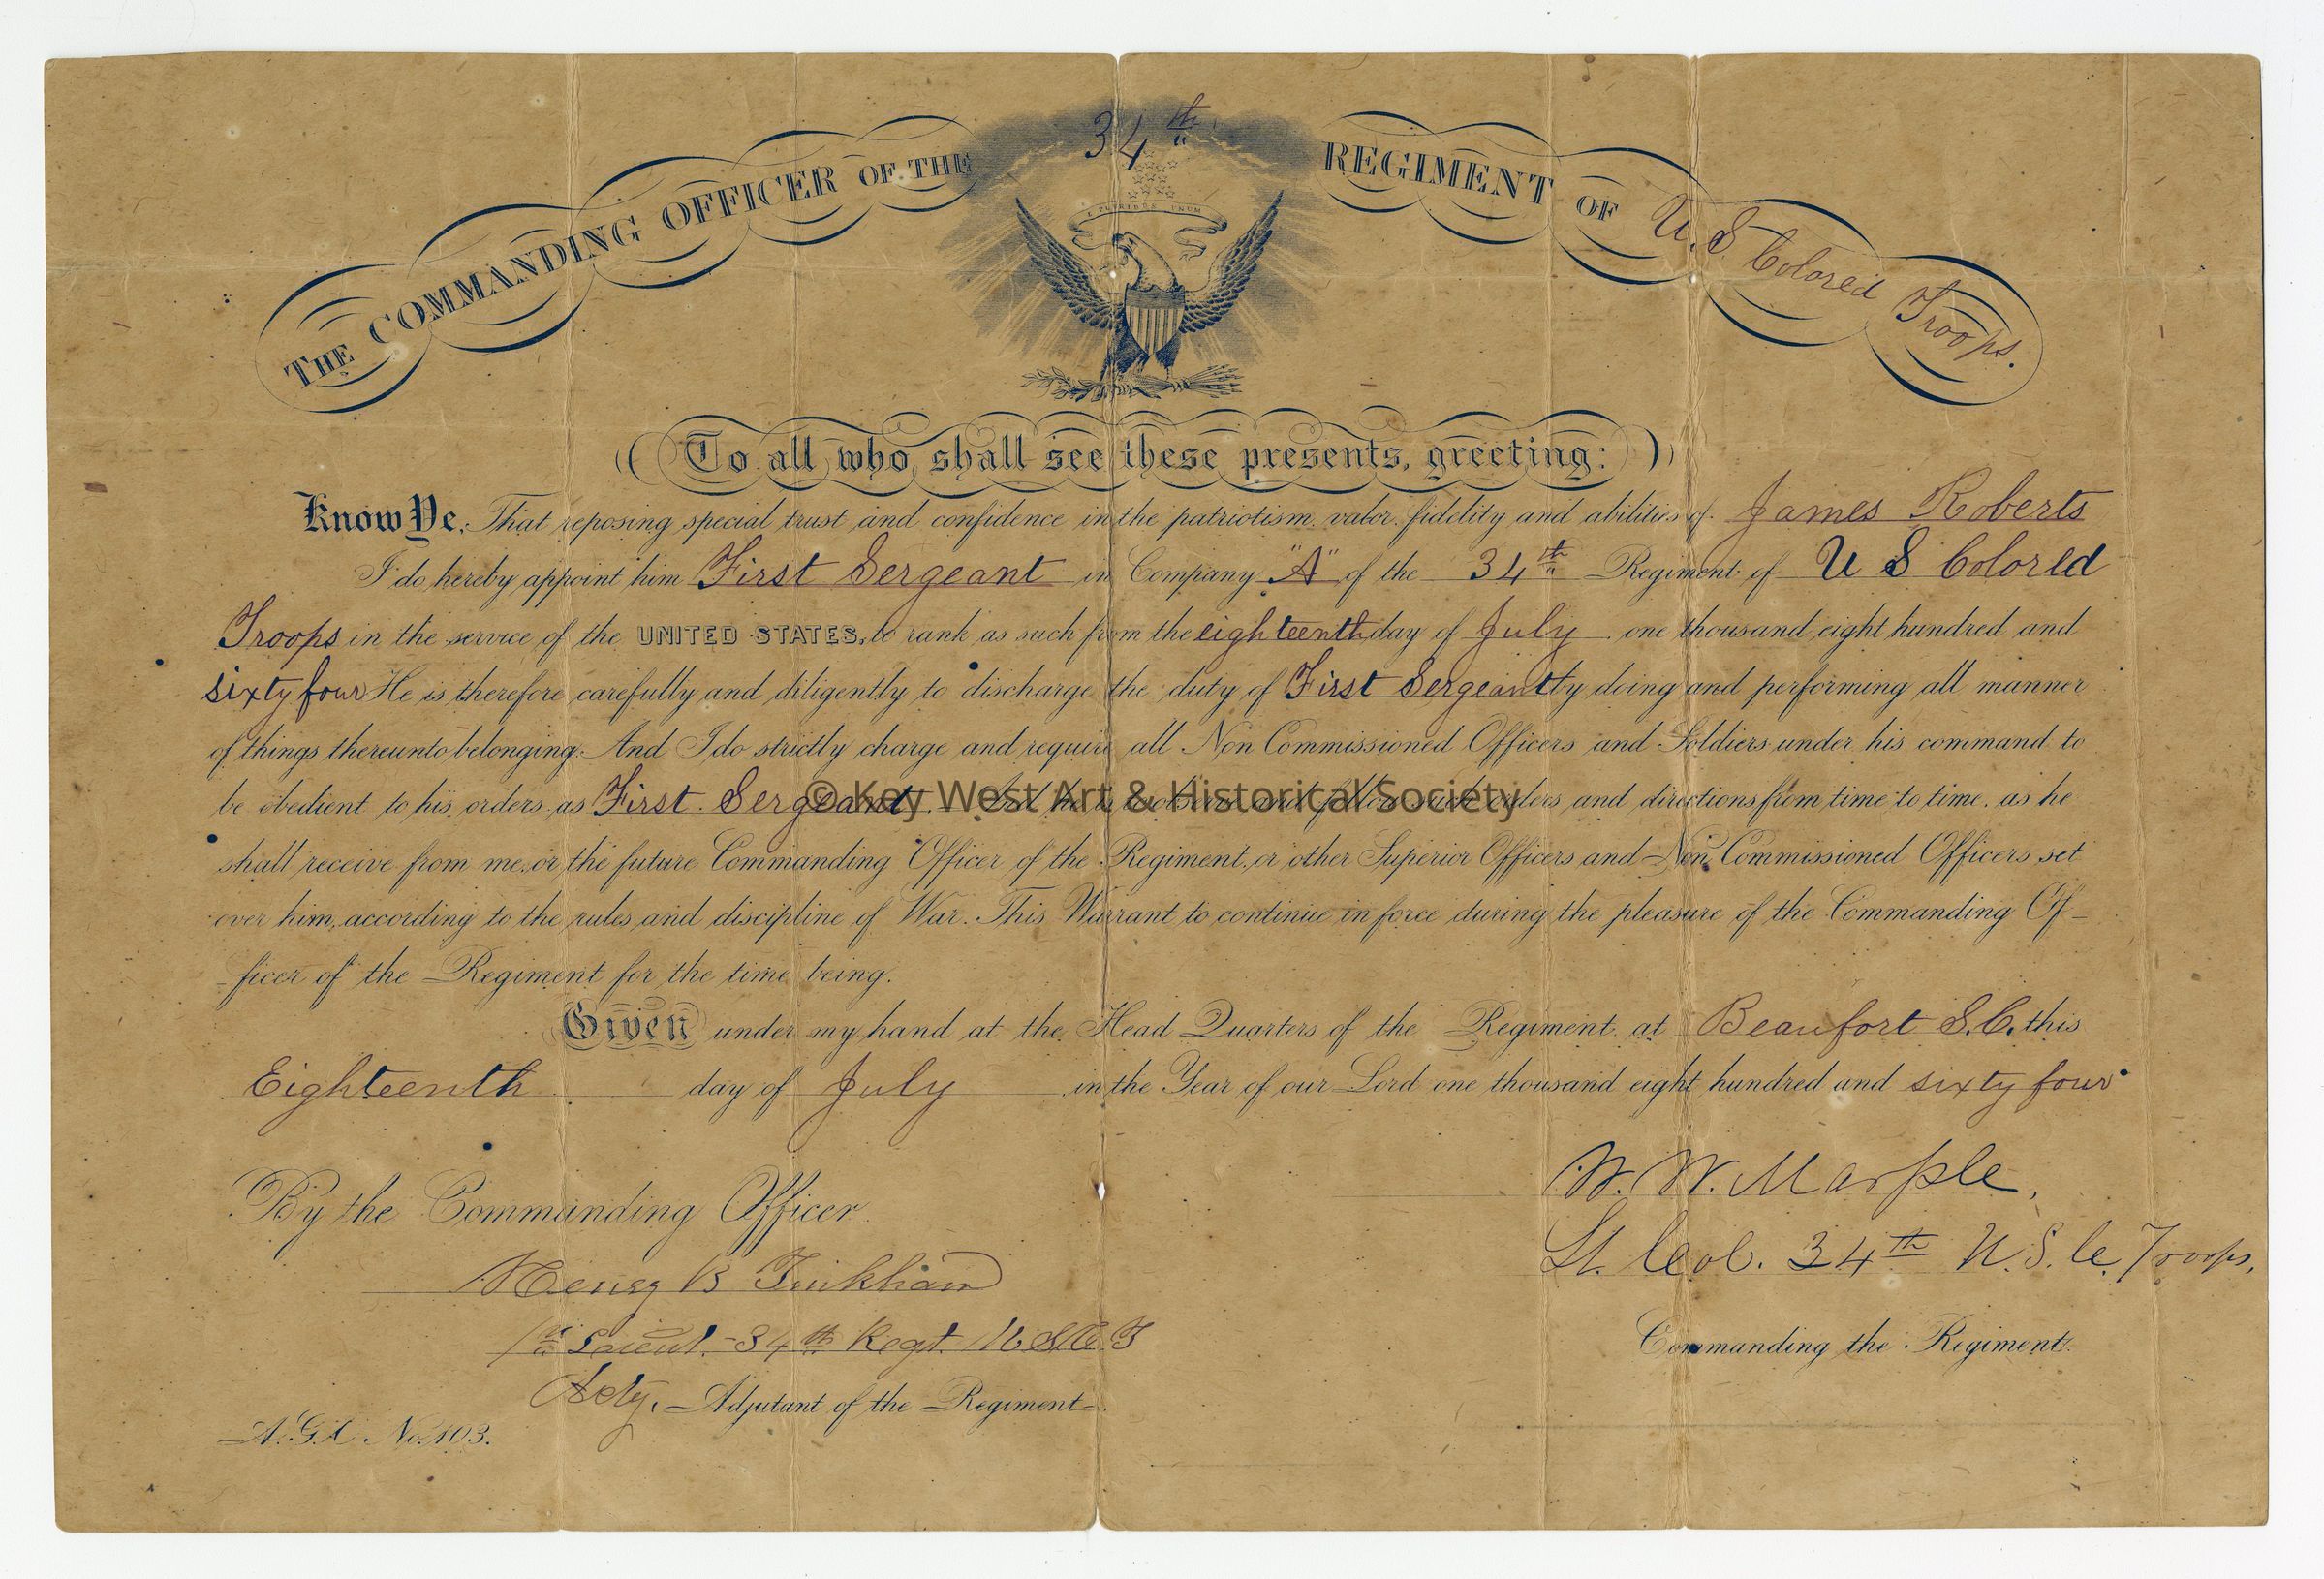 THE COMMANDING OFFICER OF THE 34th REGIMENT OF U.S. Colored Troops.
E PLURIBUS UNUM
To all who shall see these presents, greeting:
Know Ye, That reposing special trust and confidence in the patriotism, valor, fidelity and abilities of James Roberts
I do hereby appoint him First Sergeant in Company "A" of the 34th Regiment of U S Colored
Troops in the service of the UNITED STATES, to rank as such from the eighteenth day of July one thousand eight hundred and
sixty four He is therefore carefully and diligently to discharge the duty of First Sergeant by doing and performing all manner
of things thereunto belonging. And I do strictly charge and require all Non Commissioned Officers and Soldiers under his command to
be obedient to his orders as First Sergeant. And he is to observe and follow such orders and directions from time to time, as he
© Key West Art & Historical Society
shall receive from me, or the future Commanding Officer of the Regiment, or other Superior Officers and Non Commissioned Officers set
over him, according to the rules and discipline of War. This Warrant to continue in force during the pleasure of the Commanding Of-
-ficer of the Regiment for the time being.
Given under my hand at the Head Quarters of the Regiment at Beaufort S.C. this
Eighteenth day of July in the Year of our Lord one thousand eight hundred and sixty four
W. W. Marple,
By the Commanding Officer
Lt. Col. 34th U.S.C. Troops,
Henry B Tinkham
Commanding the Regiment.
1st Lieut. 34th Regt. U S C T
Actg. Adjutant of the Regiment.
A.G.O. No. 103.